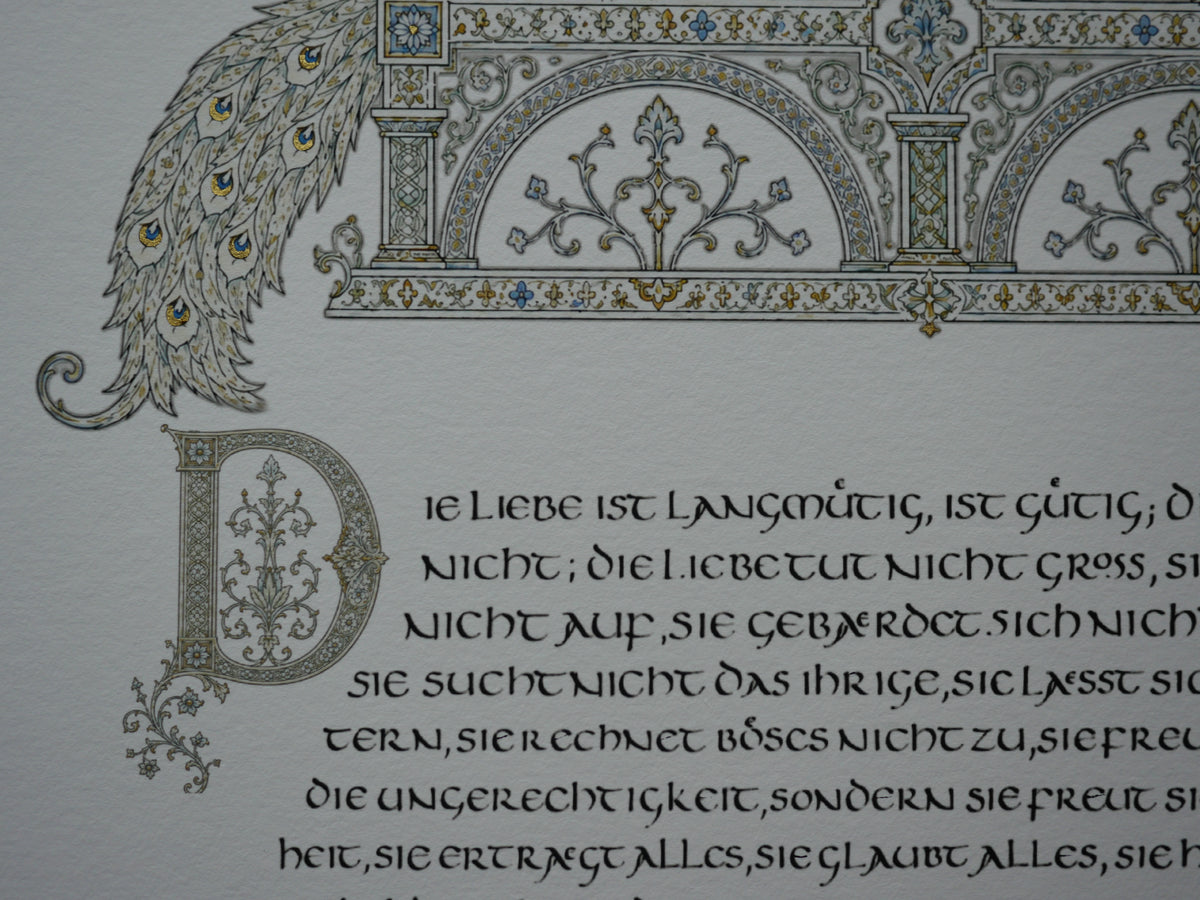 DIE LIEBE IST LANGMUͤTIG, IST GUͤTIG; D
NICHT; DIE LIEBE TUT NICHT GROSS, SI
NICHT AUF, SIE GEBÆRDET SICH NICHT
SIE SUCHT NICHT DAS IHRIGE, SIE LÆSST SIC
TERN, SIE RECHNET BOͤSES NICHT ZU, SIE FREU
DIE UNGERECHTIGKEIT, SONDERN SIE FREUT SI
HEIT, SIE ERTRÆGT ALLES, SIE GLAUBT ALLES, SIE H